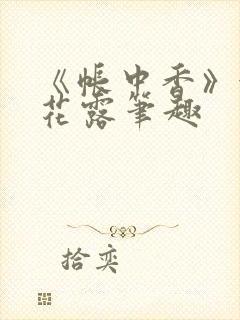 《帐中香》
花露笔趣
拾奕